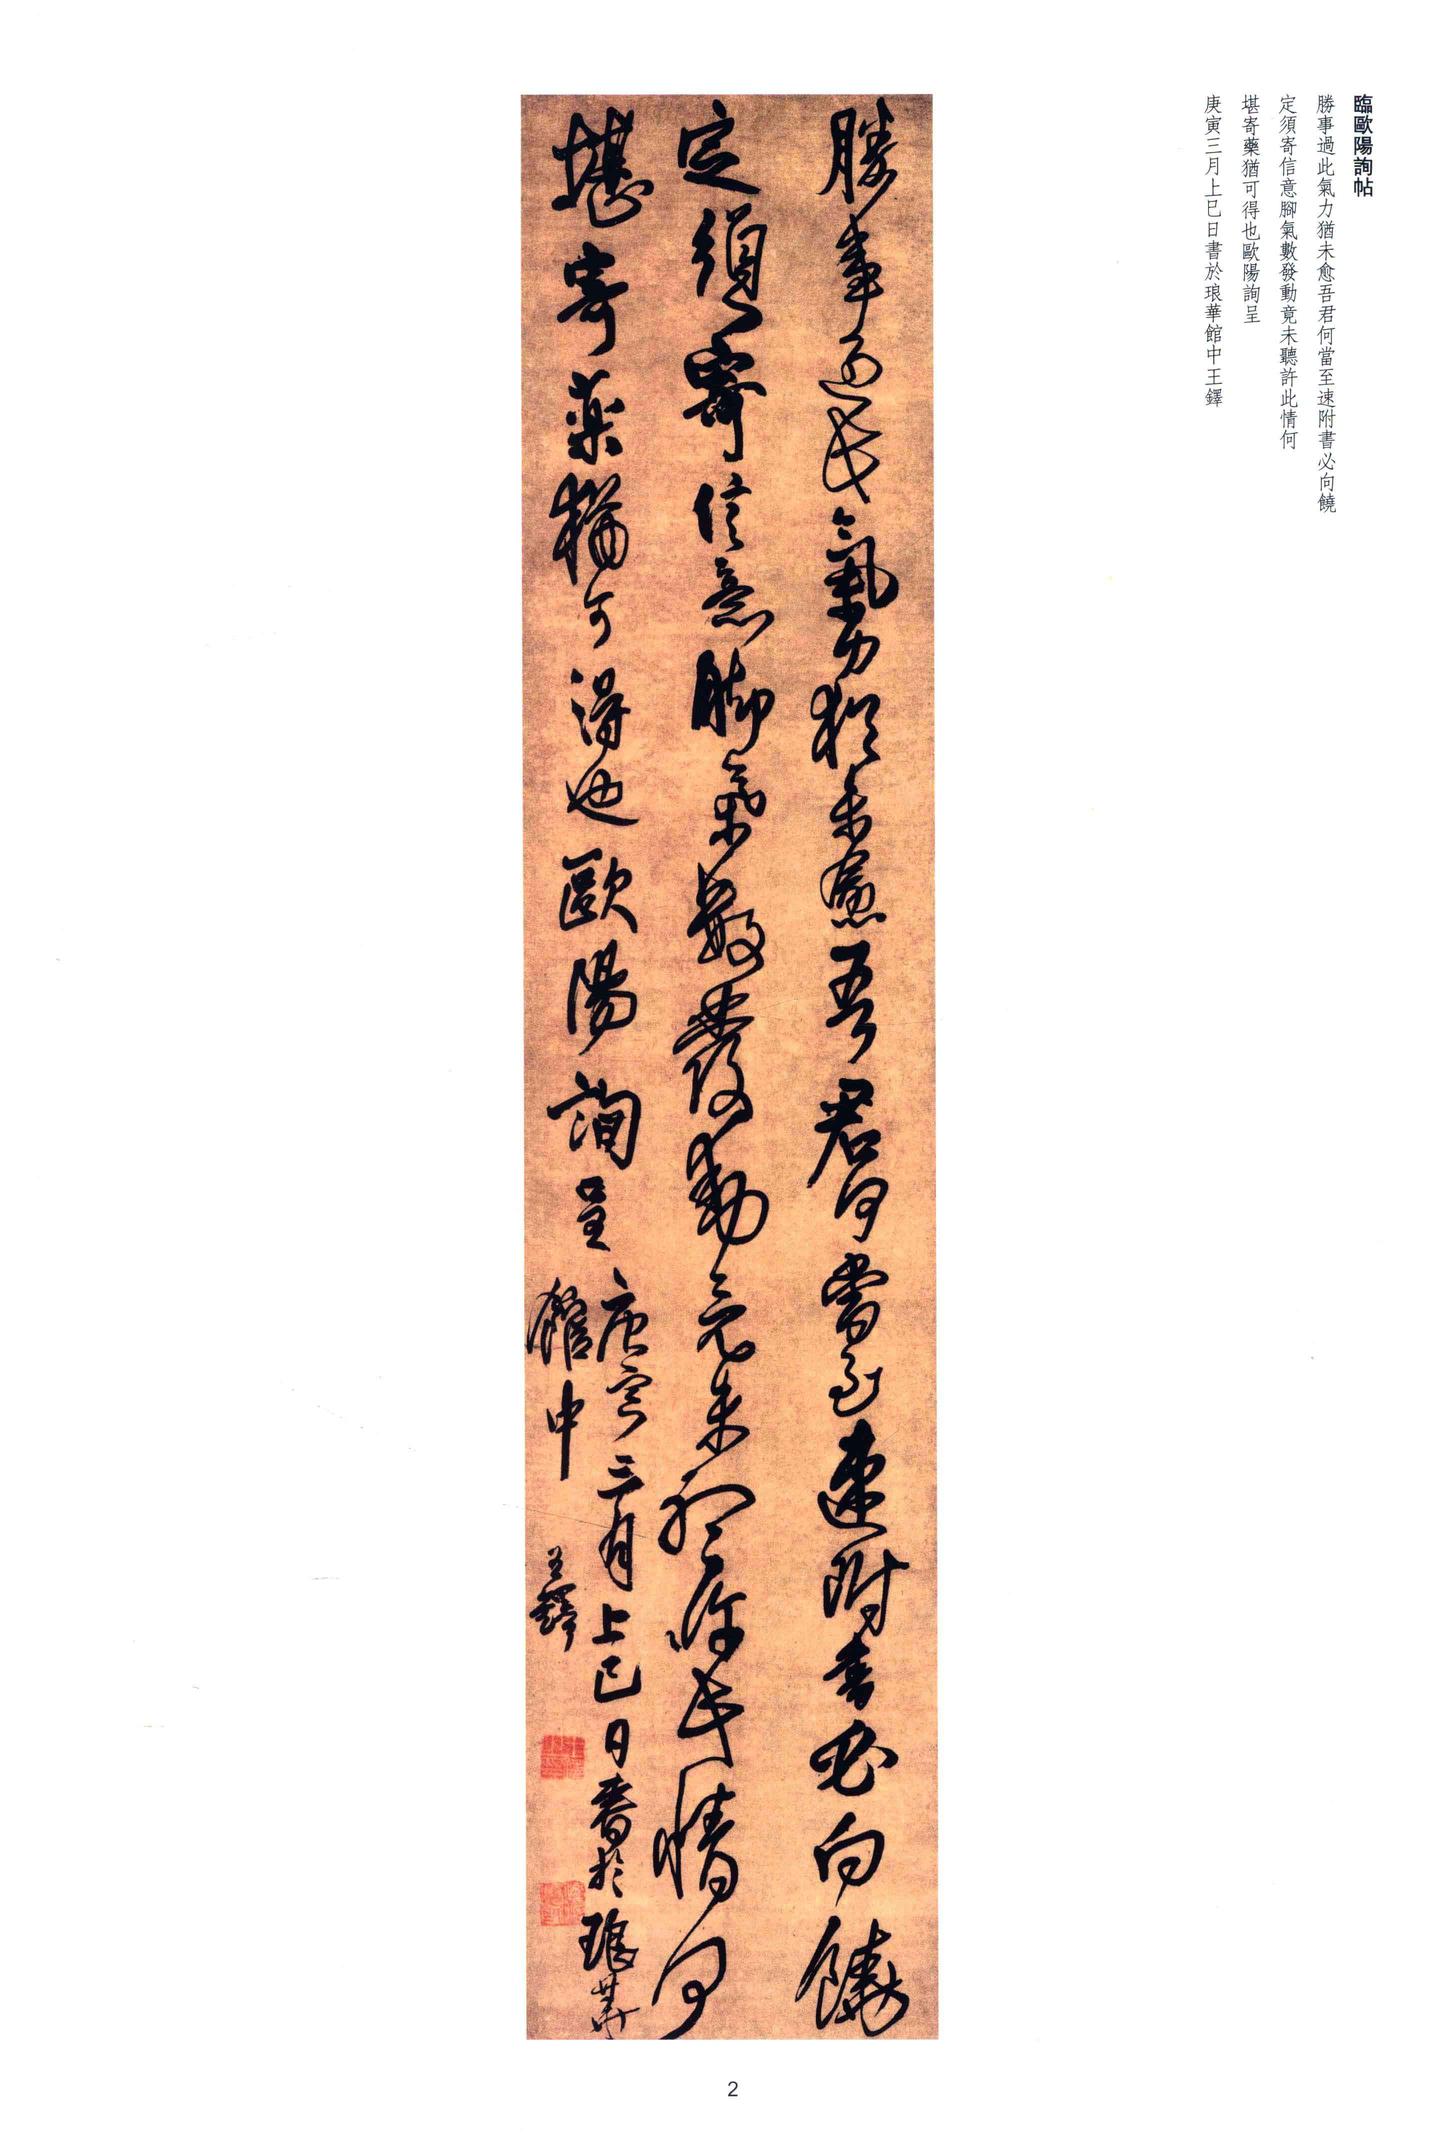 臨歐陽詢帖
勝事過此氣力猶未愈吾君何當至速附書必向饒
定須寄信意腳氣數發動竟未聽許此情何
堪寄藥猶可得也歐陽詢呈
庚寅三月上巳日書於琅華館中王鐸
勝事過此氣力猶未愈吾君何當至速附書必向饒
定須寄信意腳氣數發動竟未聽許此情何
堪寄藥猶可得也歐陽詢呈
庚寅三月上巳日書於琅華
館中
王鐸
2